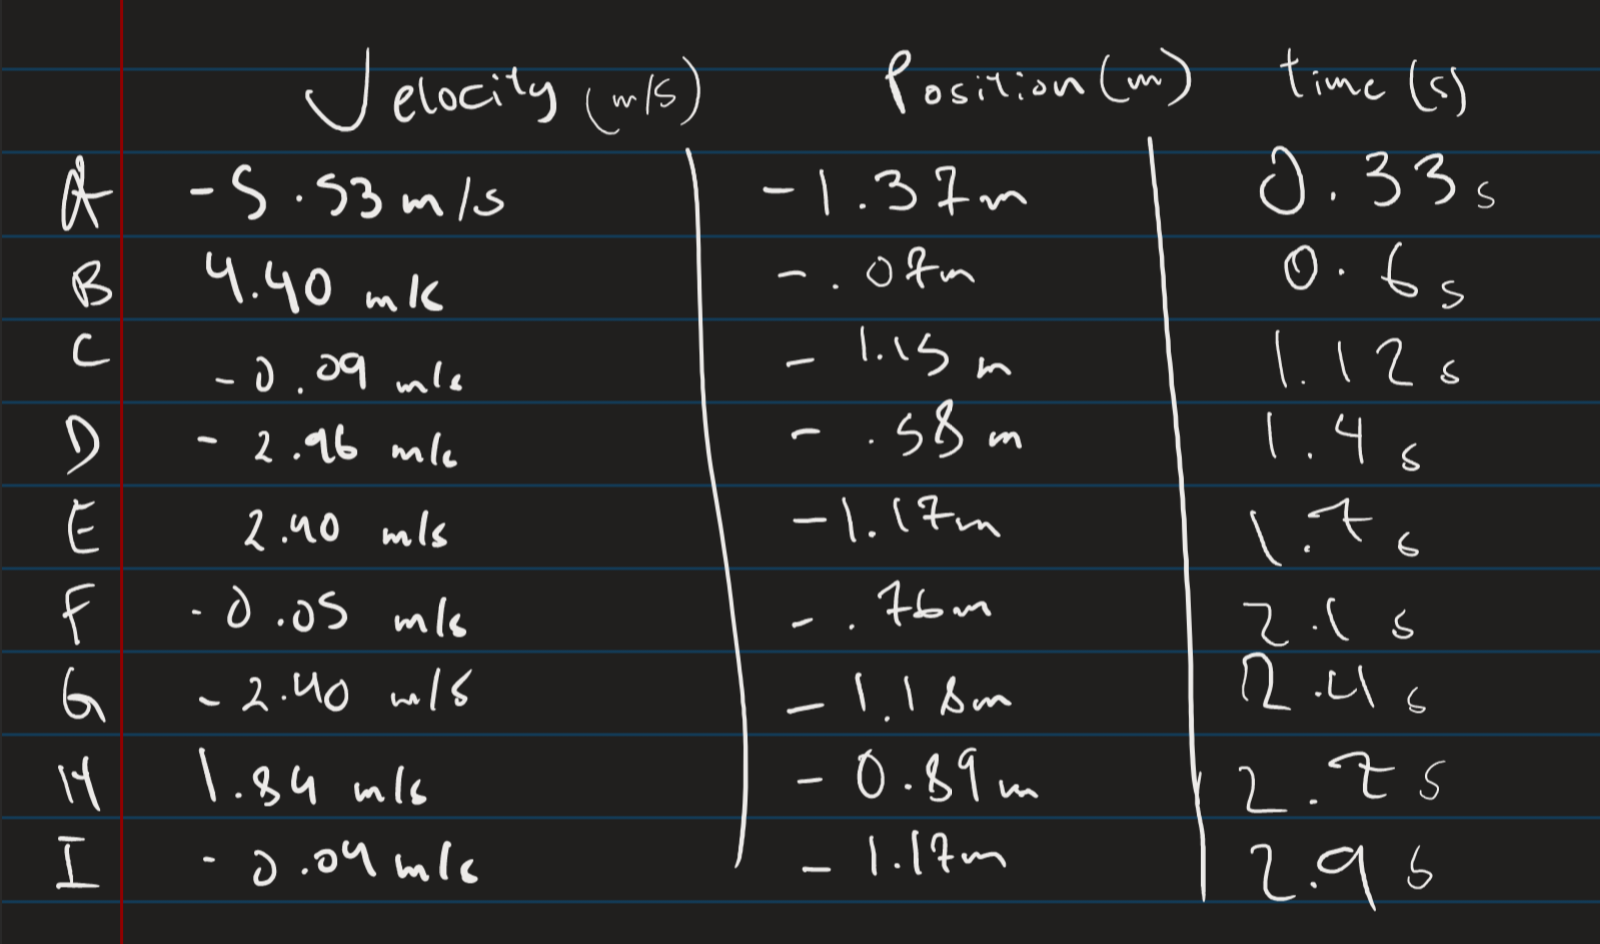 Velocity (m/s) Position (m) time (s)
A -5.53 m/s -1.37m 0.33s
B 4.40 m/s -.07m 0.6s
C -0.09 m/s -1.15 m 1.12s
D -2.96 m/s -.58 m 1.4s
E 2.40 m/s -1.17m 1.7s
F -0.05 m/s -.76m 2.1s
G -2.40 m/s -1.18m 2.4s
H 1.84 m/s -0.89m 2.7s
I -0.04 m/s -1.17m 2.9s